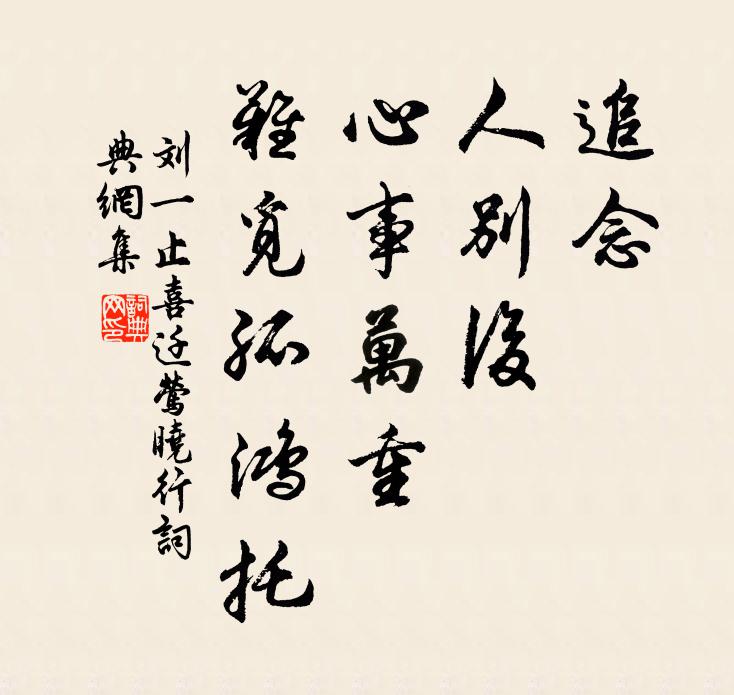 追念
人別後
心事萬重
難覓孤鴻托
刘一止喜迁莺曉行詞
典網集
詞典網印